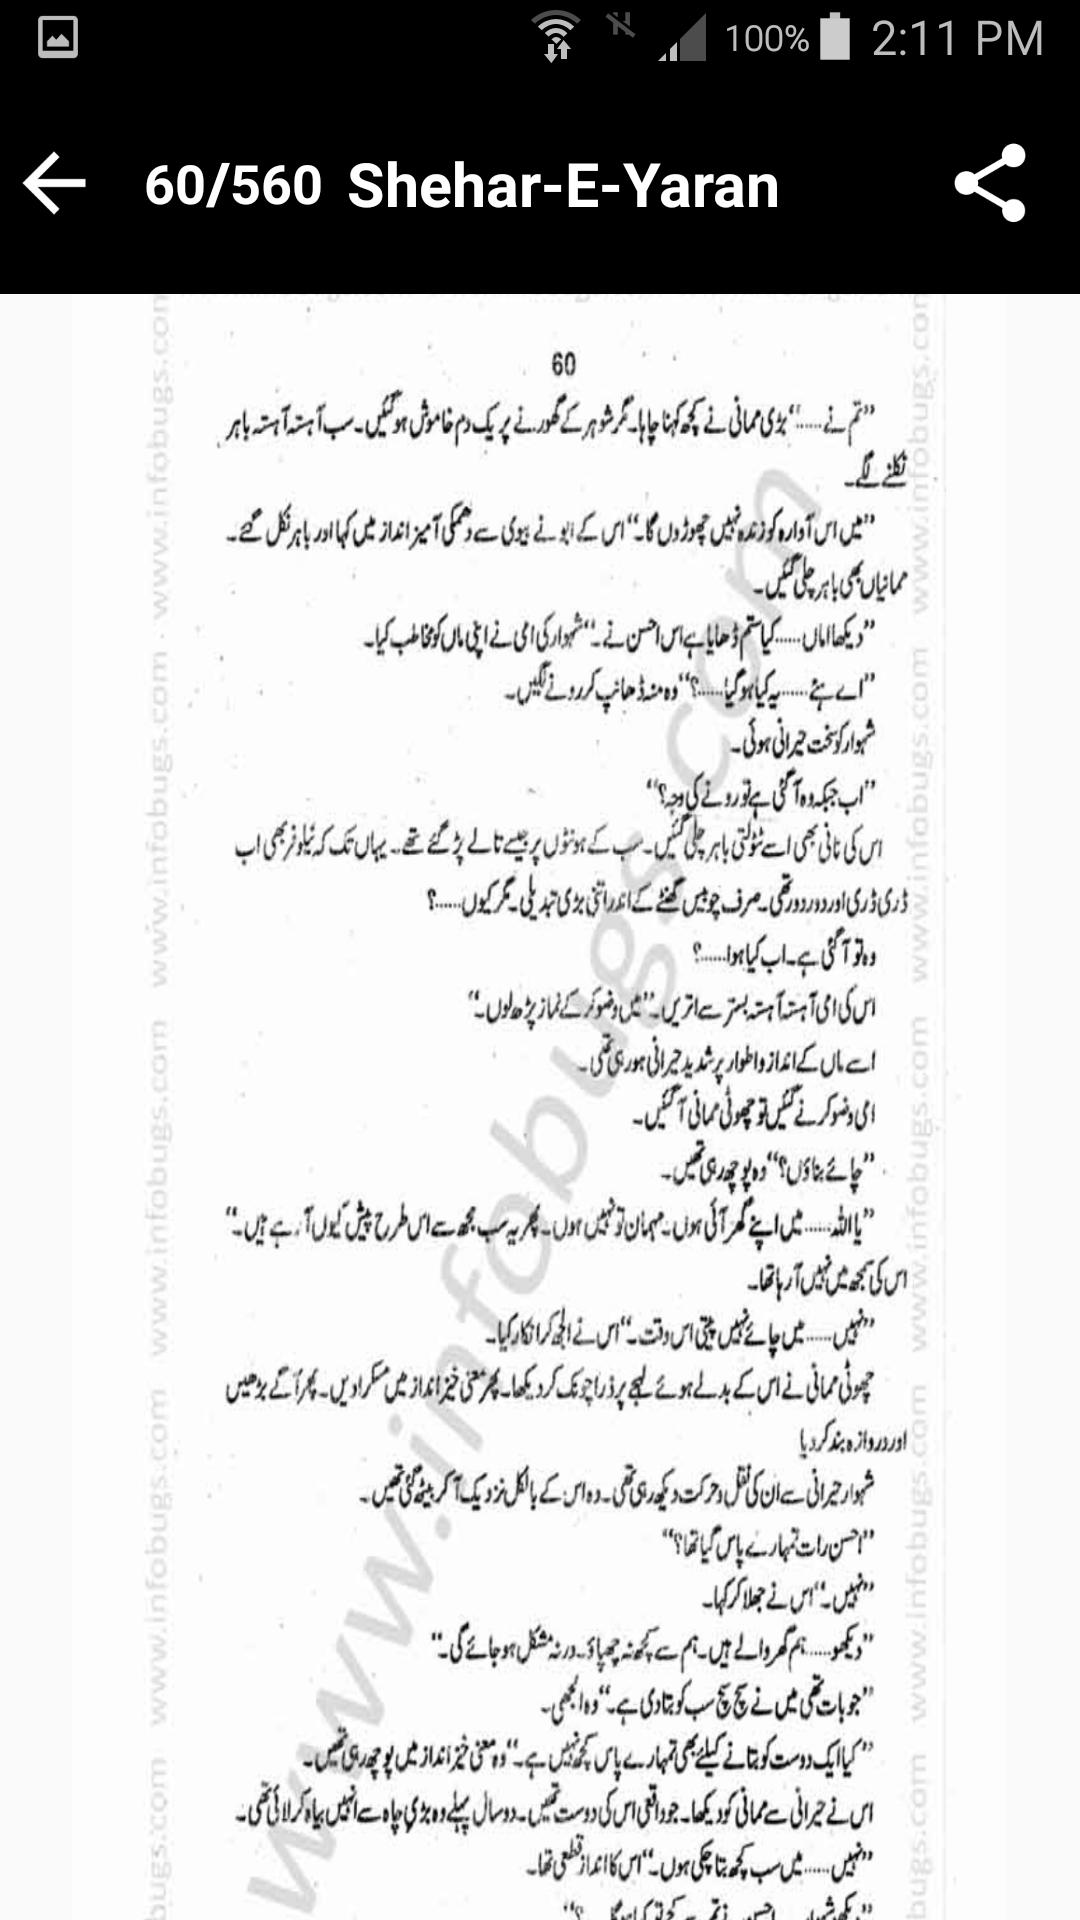 100% 2:11 PM
60/560 Shehar-E-Yaran
60
”تم نے......“ بڑی ممانی نے کچھ کہنا چاہا۔ مگر شوہر کے گھورنے پر یک دم خاموش ہو گئیں۔ سب آہستہ آہستہ باہر
نکلنے لگے۔
”میں اس آوارہ کو زندہ نہیں چھوڑوں گا۔“ اس کے ابو نے بیوی سے دھمکی آمیز انداز میں کہا اور باہر نکل گئے۔
ممانیاں بھی باہر چلی گئیں۔
”دیکھا اماں...... کیا ستم ڈھایا ہے اس احسن نے۔“ شہوار کی امی نے اپنی ماں کو مخاطب کیا۔
”اے ہئے...... یہ کیا ہو گیا......؟“ وہ منہ ڈھانپ کر رونے لگیں۔
شہوار کو سخت حیرانی ہوئی۔
”اب جبکہ وہ آ گئی ہے تو رونے کی وجہ؟“
اس کی نانی بھی اسے ٹٹولتی باہر چلی گئیں۔ سب کے ہونٹوں پر جیسے تالے پڑ گئے تھے۔ یہاں تک کہ نیلوفر بھی اب
ڈری ڈری اور دور دور تھی۔ صرف چوبیس گھنٹے کے اندر اتنی بڑی تبدیلی۔ مگر کیوں......؟
وہ تو آ گئی ہے۔ اب کیا ہوا......؟
اس کی امی آہستہ آہستہ بستر سے اتریں۔ ”میں وضو کر کے نماز پڑھ لوں۔“
اسے ماں کے انداز و اطوار پر شدید حیرانی ہو رہی تھی۔
امی وضو کرنے گئیں تو چھوٹی ممانی آ گئیں۔
”چائے بناؤں؟“ وہ پوچھ رہی تھیں۔
”یا اللہ...... میں اپنے گھر آئی ہوں۔ مہمان تو نہیں ہوں۔ پھر یہ سب مجھ سے اس طرح پیش کیوں آ رہے ہیں۔“
اس کی سمجھ میں نہیں آ رہا تھا۔
”نہیں...... میں چائے نہیں پیتی اس وقت۔“ اس نے الجھ کر انکار کیا۔
چھوٹی ممانی نے اس کے بدلے ہوئے لہجے پر ذرا چونک کر دیکھا۔ پھر معنی خیز انداز میں مسکرا دیں۔ پھر آگے بڑھیں
اور دروازہ بند کر دیا
شہوار حیرانی سے ان کی نقل و حرکت دیکھ رہی تھی۔ وہ اس کے بالکل نزدیک آ کر بیٹھ گئی تھیں۔
”احسن رات تمہارے پاس گیا تھا؟“
”نہیں۔“ اس نے جھلا کر کہا۔
”دیکھو...... ہم گھر والے ہیں۔ ہم سے کچھ نہ چھپاؤ۔ ورنہ مشکل ہو جائے گی۔“
”جو بات تھی میں نے سچ سچ سب کو بتا دی ہے۔“ وہ الجھی۔
”کیا ایک دوست کو بتانے کیلئے بھی تمہارے پاس کچھ نہیں ہے۔“ وہ معنی خیز انداز میں پوچھ رہی تھیں۔
اس نے حیرانی سے ممانی کو دیکھا۔ جو واقعی اس کی دوست تھیں۔ دو سال پہلے وہ بڑی چاہ سے انہیں بیاہ کر لائی تھی۔
”نہیں...... میں سب کچھ بتا چکی ہوں۔“ اس کا انداز قطعی تھا۔
www.infobugs.com